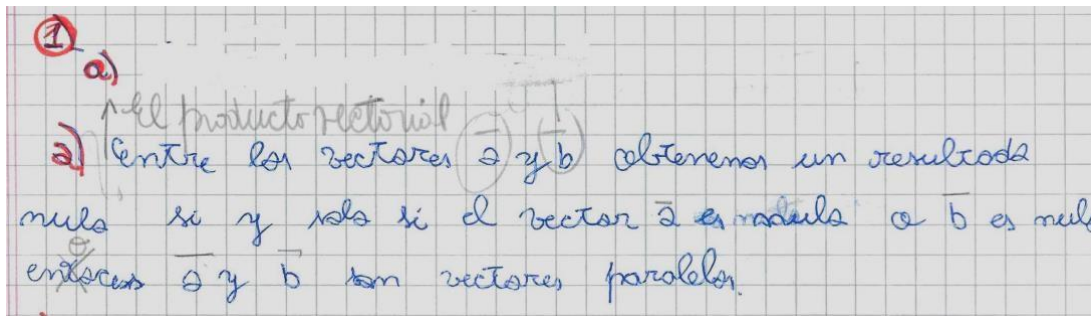 1
a)
El producto vectorial
a) Entre los vectores a y b obtenemos un resultado
nulo si y solo si el vector a es nulo o b es nulo
o a y b son vectores paralelos.